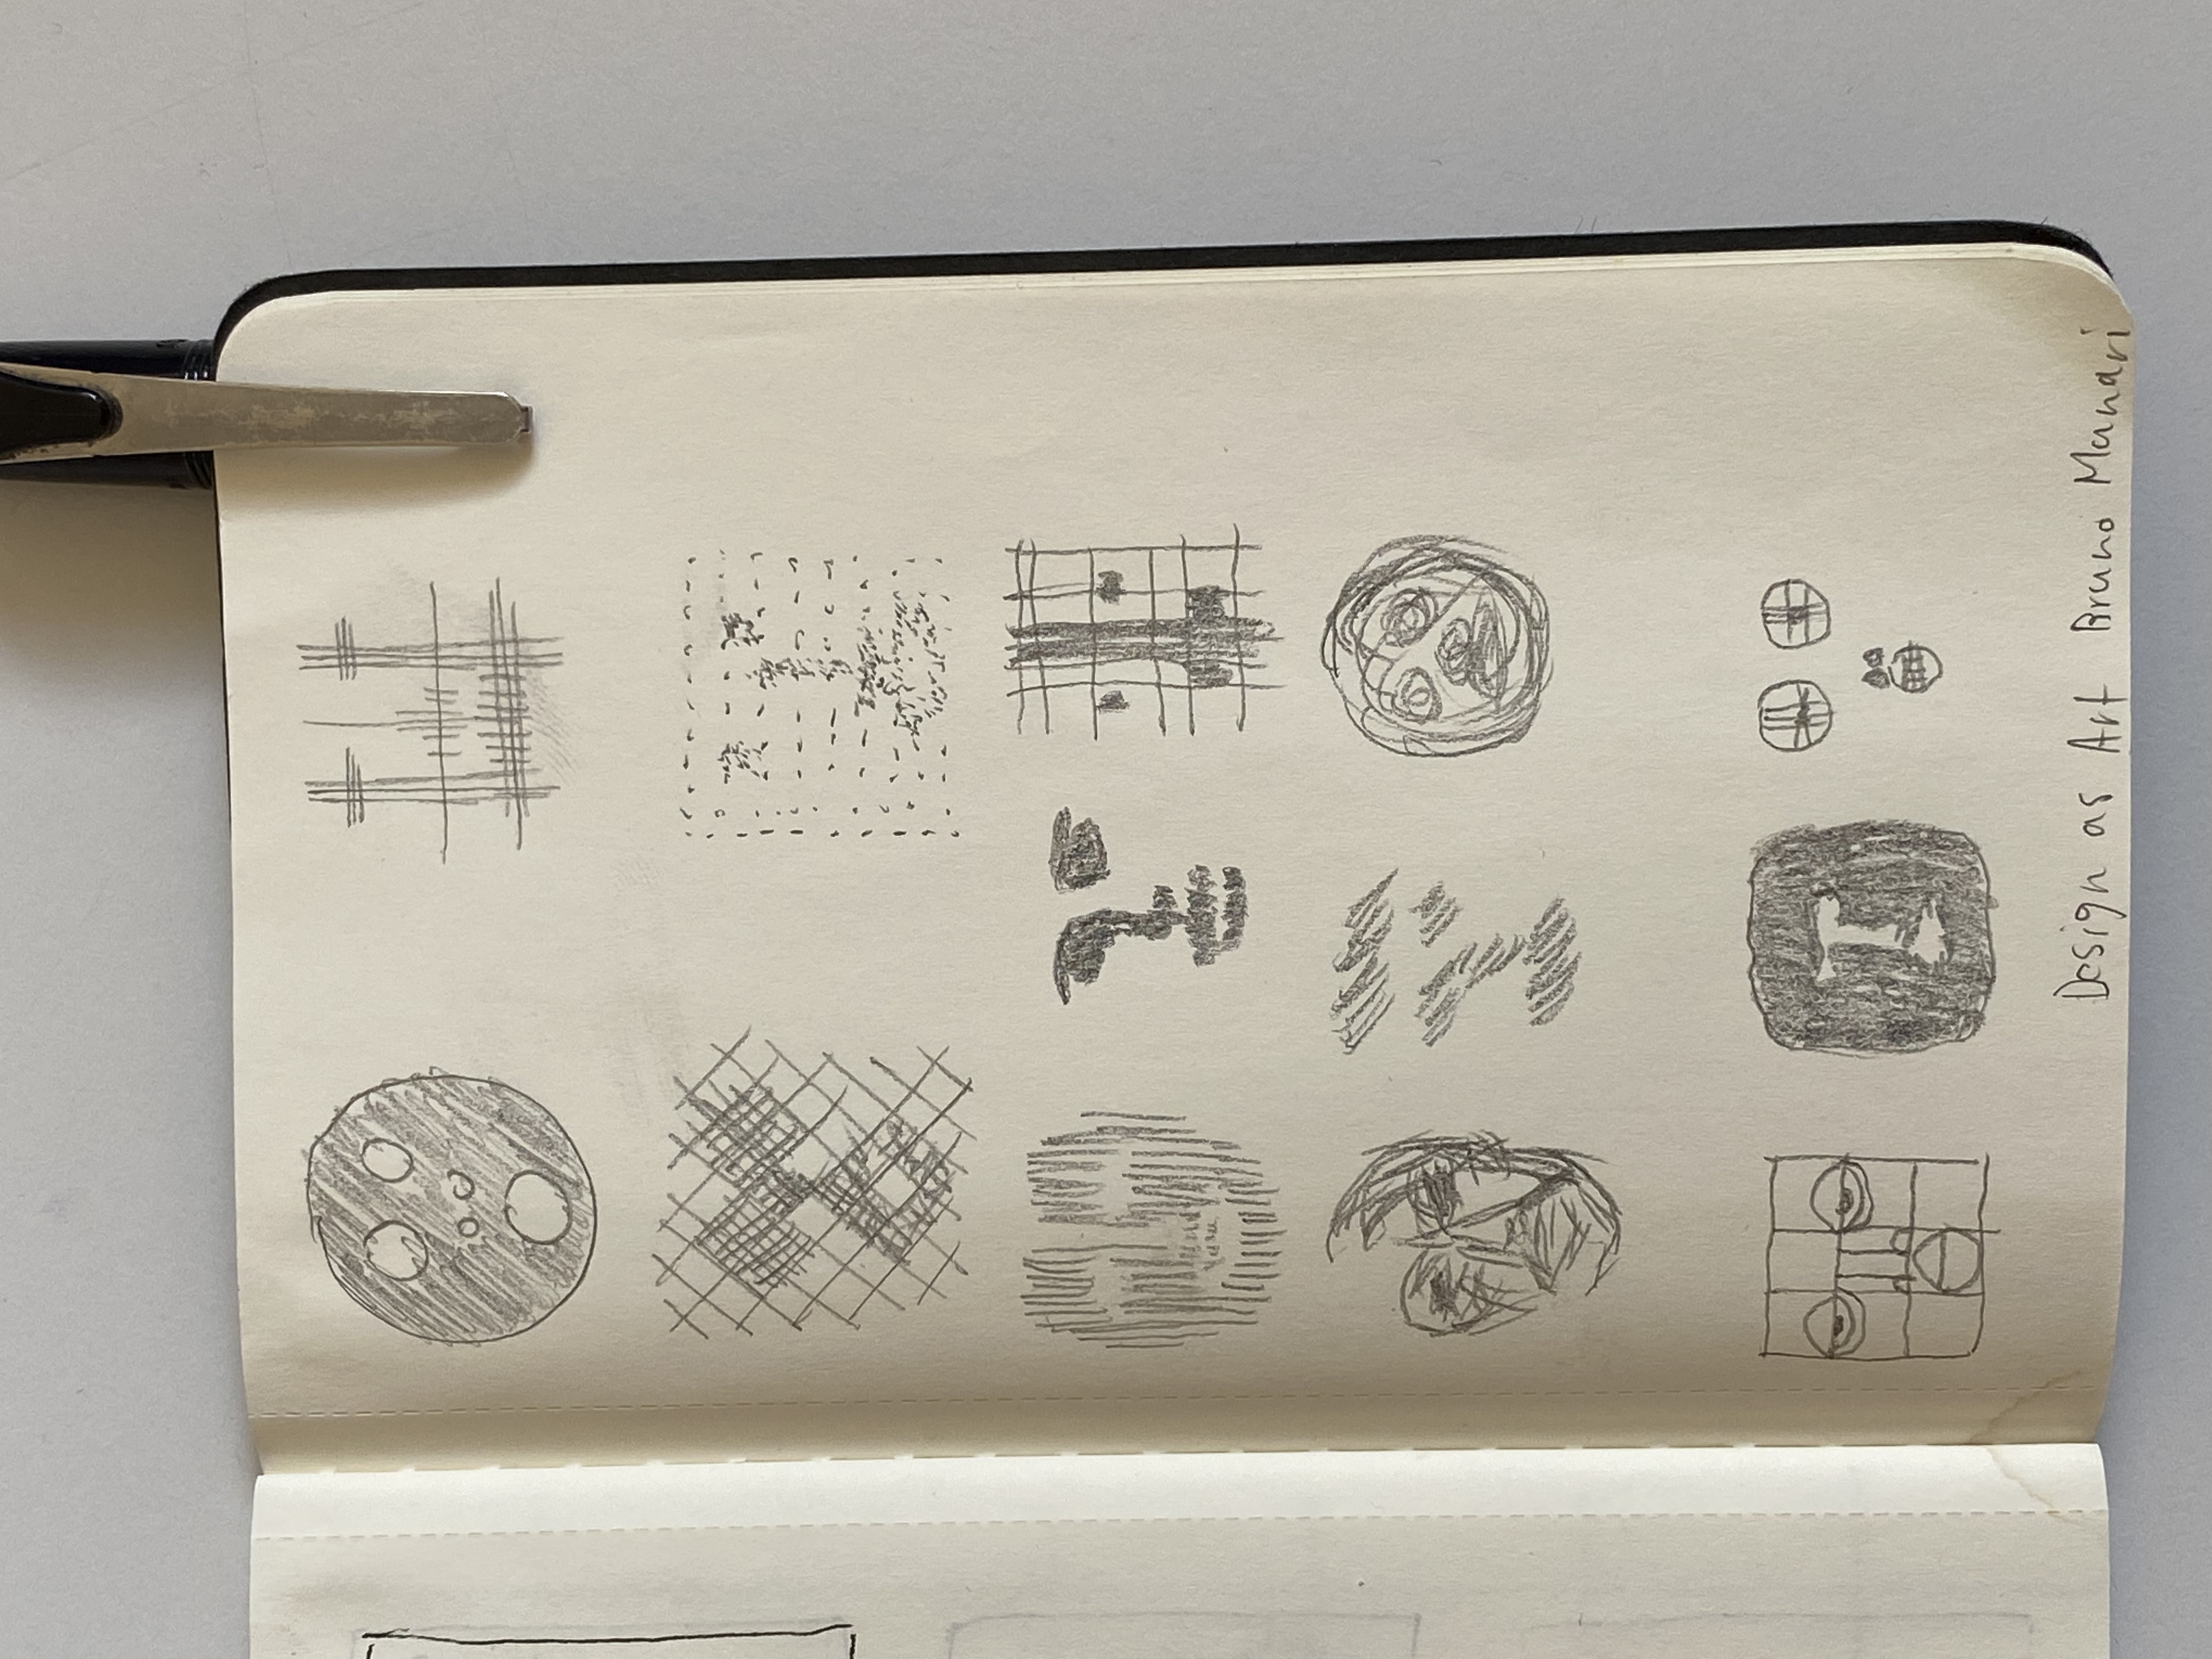 Design as Art Bruno Munari